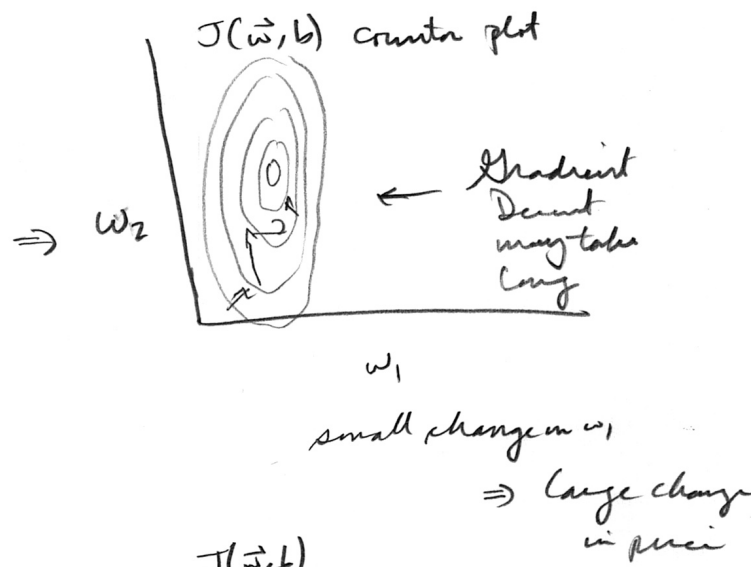 J(w⃗,b) countor plot
Gradient
Descent
may take
long
⇒ w₂
w₁
small change in w₁
⇒ large change
in price
J(w⃗,b)